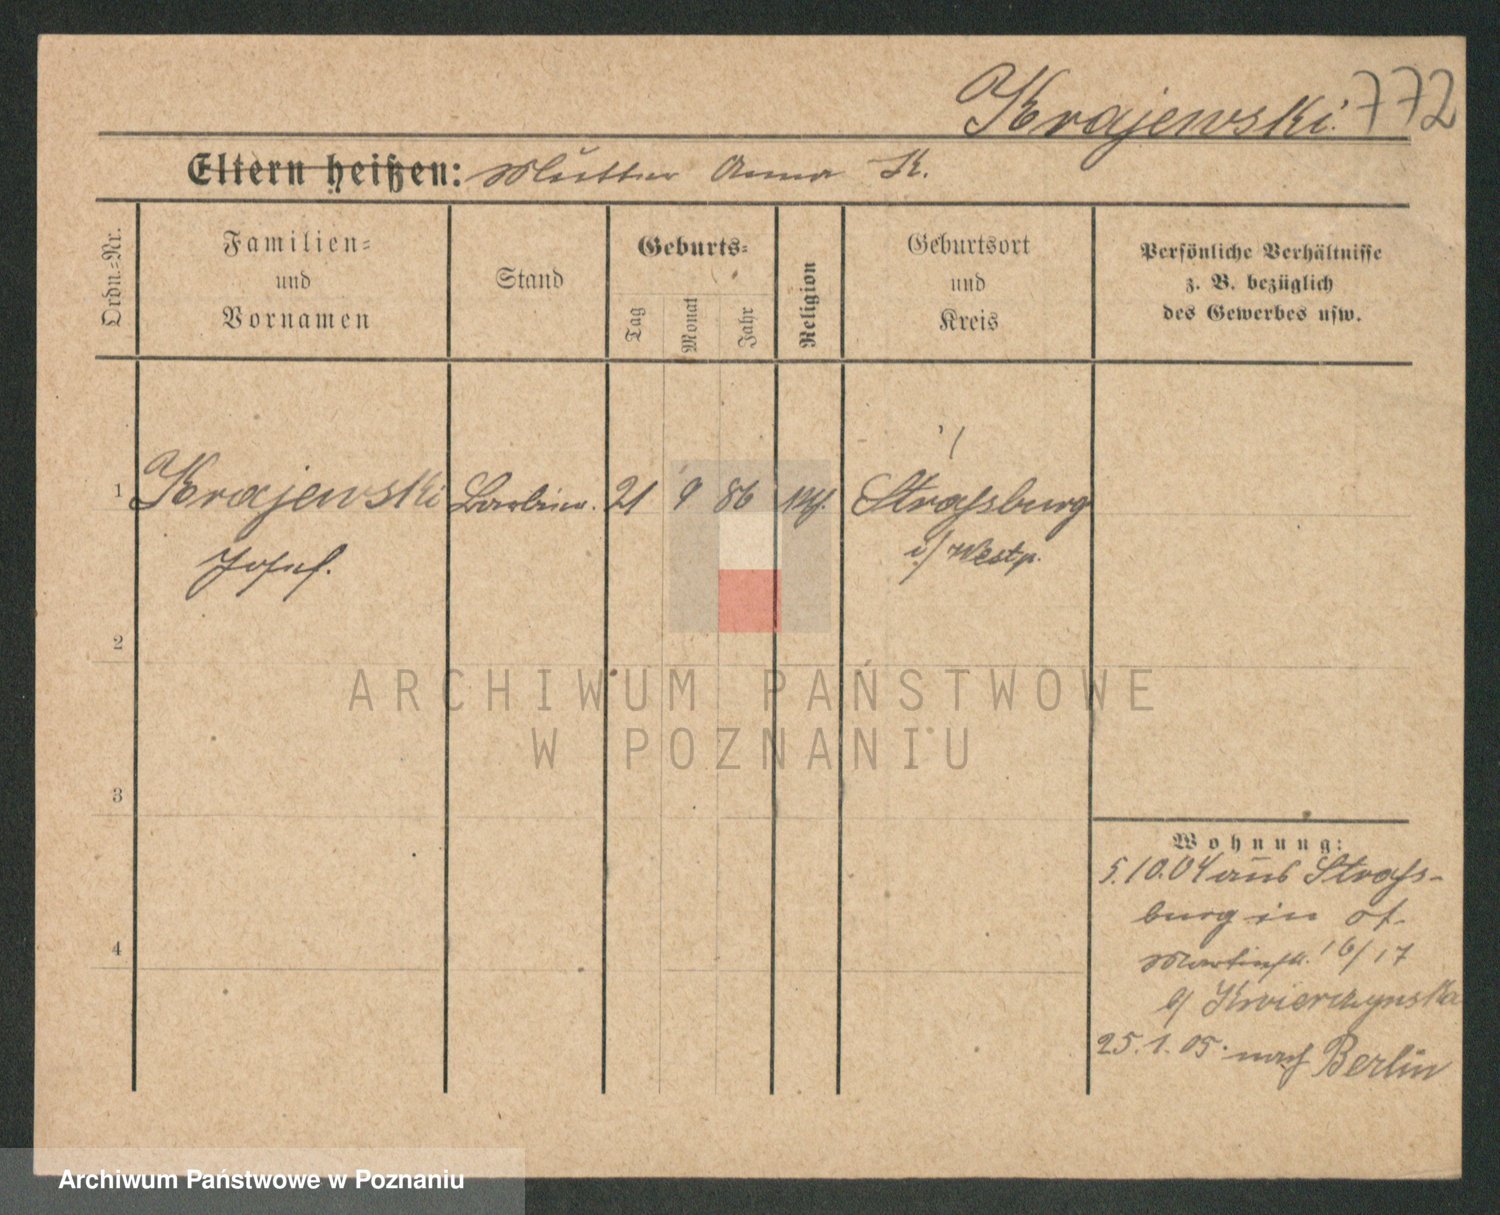 Krajewski. 772
Eltern heißen: Mutter Anna K.
Ordn.-Nr.
Familien-
und
Vornamen
Stand
Geburts-
Tag
Monat
Jahr
Religion
Geburtsort
und
Kreis
Persönliche Verhältnisse
z. B. bezüglich
des Gewerbes usw.
1 Krajewski Barbier. 21 9 86 kth. Straßburg
Josef. i/ Westp.
2
3
4
Wohnung:
5.10.04 aus Straß-
burg in St.
Martinstr. 16/17
b/ Kwierczynska
25.1.05. nach Berlin
ARCHIWUM PAŃSTWOWE
W POZNANIU
Archiwum Państwowe w Poznaniu